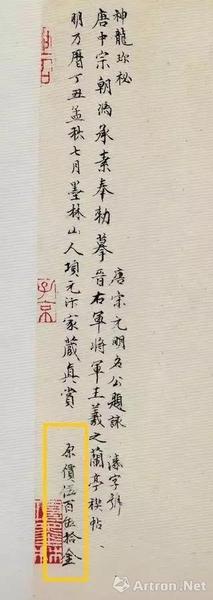 神龍珎秘
唐宋元明名公題詠
字號
唐中宗朝馮承素奉勅摹晉右軍將軍王羲之蘭亭禊帖
明万曆丁丑孟秋七月墨林山人項元汴家藏真賞
原價伍百伍拾金
子京
Artron.Net